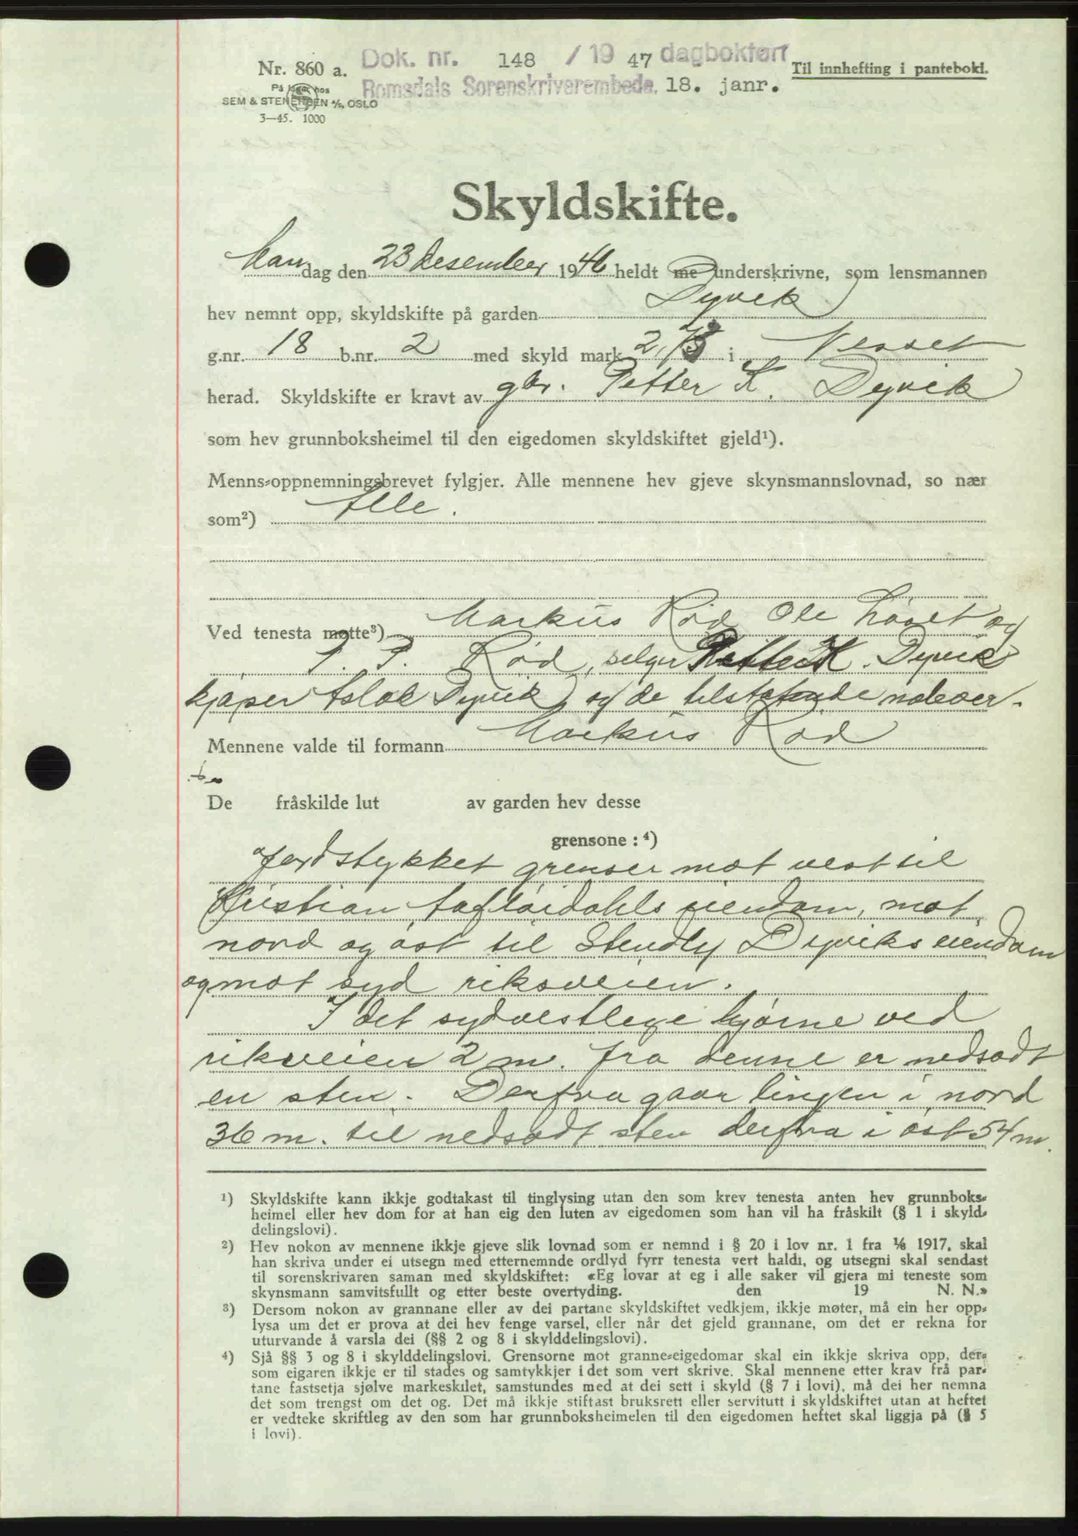 Nr. 860 a.
På lager hos
SEM & STENERSEN A/S, OSLO
3—45. 1000
Dok. nr. 148 / 19 47 dagbokført
Romsdals Sorenskriverembede, 18. janr.
Til innhefting i pantebok.
Skyldskifte.
Mandag den 23 desember 1946 heldt me underskrivne, som lensmannen
hev nemnt opp, skyldskifte på garden Dyvik
g.nr. 18 b.nr. 2 med skyld mark i Nesset
herad. Skyldskifte er kravt av gbr. Petter K. Dyvik
som hev grunnboksheimel til den eigedomen skyldskiftet gjeld¹).
Menns-oppnemningsbrevet fylgjer. Alle mennene hev gjeve skynsmannslovnad, so nær
som²) Alle.
Ved tenesta møtte³) Markus Rød Ole og
P. P. Rød, selger Petter K. Dyvik
kjøper Aslak Dyvik og de tilstøtende naboer.
Mennene valde til formann Markus Rød
De fråskilde lut av garden hev desse
grensone : ⁴)
Jordstykket grenser mot vest til
Kristian eiendom, mot
nord og øst til Dyviks eiendom
og mot syd riksveien.
I det sydvestlege hjørne ved
riksveien 2 m. fra denne er nedsadt
en sten. Derfra gaar linjen i nord
36 m. til nedsadt sten derfra i øst 54 m.
¹) Skyldskifte kann ikkje godtakast til tinglysing utan den som krev tenesta anten hev grunnboks-
heimel eller hev dom for at han eig den luten av eigedomen som han vil ha fråskilt (§ 1 i skyld-
delingslovi).
²) Hev nokon av mennene ikkje gjeve slik lovnad som er nemnd i § 20 i lov nr. 1 fra 1/6 1917, skal
han skriva under ei utsegn med etternemnde ordlyd fyrr tenesta vert haldi, og utsegni skal sendast
til sorenskrivaren saman med skyldskiftet: «Eg lovar at eg i alle saker vil gjera mi teneste som
skynsmann samvitsfullt og etter beste overtyding. den 19 N. N.»
³) Dersom nokon av grannane eller av dei partane skyldskiftet vedkjem, ikkje møter, må ein her opp-
lysa um det er prova at dei hev fenge varsel, eller når det gjeld grannane, om det er rekna for
uturvande å varsla dei (§§ 2 og 8 i skylddelingslovi).
⁴) Sjå §§ 3 og 8 i skylddelingslovi. Grensorne mot granne-eigedomar skal ein ikkje skriva opp, der-
som eigaren ikkje er til stades og samtykkjer i det som vert skrive. Skal mennene etter krav frå par-
tane fastsetja sjølve markeskilet, samstundes med at dei sett i skyld (§ 7 i lovi), må dei her nemna
det som trengst om det og. Det må ikkje stiftast bruksrett eller servitutt i skyldskiftet utan at heftet
er vedteke skriftleg av den som har grunnboksheimelen til den eigedomen heftet skal liggja på (§ 5
i lovi).